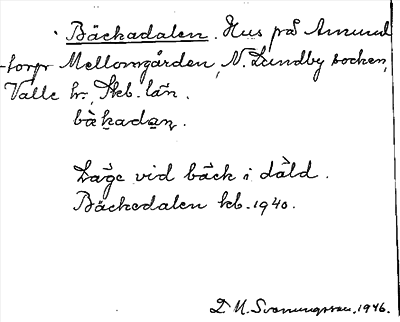 Bäckadalen. Hus på Amund-
torps Mellomgården, N. Lundby socken,
Valle hd, Skb. län.
bäkadan.
Läge vid bäck i däld.
Bäckedalen kb. 1940.
D M. Svanungsson, 1946.